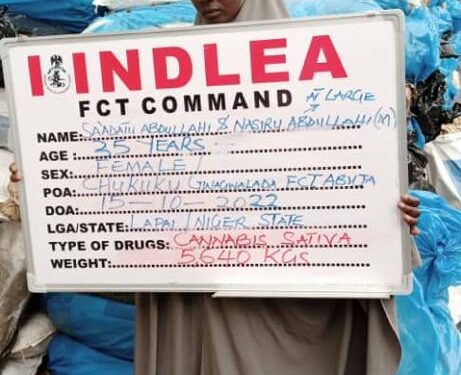 NDLEA
FCT COMMAND AT LARGE
NAME: SAADATU ABDULLAHI & NASIRU ABDULLAHI (M)
AGE: 35 YEARS
SEX: FEMALE /
POA: CHUKUKU GWAGWALADA FCT ABUJA
DOA: 15-10-2022
LGA/STATE: LAPAI / NIGER STATE
TYPE OF DRUGS: CANNABIS SATIVA
WEIGHT: 5640 KGS